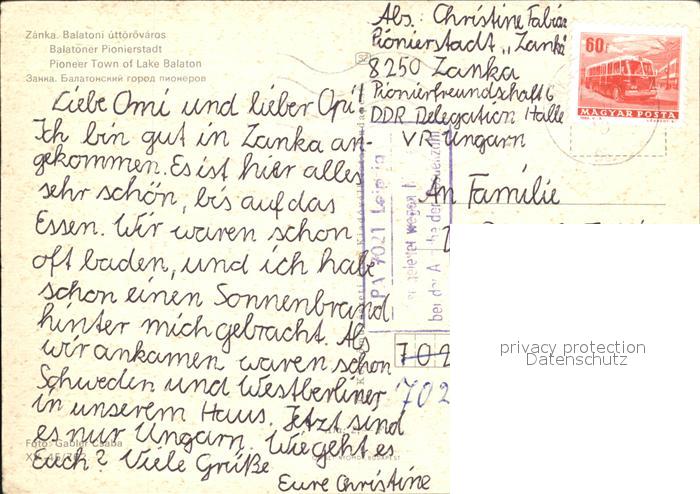 Zánka. Balatoni úttörőváros
Balatoner Pionierstadt
Pioneer Town of Lake Balaton
Занка. Балатонский город пионеров
Liebe Omi und lieber Opi!
Ich bin gut in Zanka an-
gekommen. Es ist hier alles
sehr schön, bis auf das
Essen. Wir waren schon
oft baden, und ich habe
schon einen Sonnenbrand
hinter mich gebracht. Als
wir ankamen waren schon
Schweden und Westberliner
in unserem Haus. Jetzt sind
es nur Ungarn. Wie geht es
Euch? Viele Grüße
Eure Christine
Foto: Gabler Csaba
Abs.: Christine Fabian
Pionierstadt „Zanka
8250 Zanka
Pionierfreundschaft 6
DDR Delegation Halle
VR Ungarn
60f
MAGYAR POSTA
An Familie
PA 7021 Leipzig
bei der
702
702
privacy protection
Datenschutz